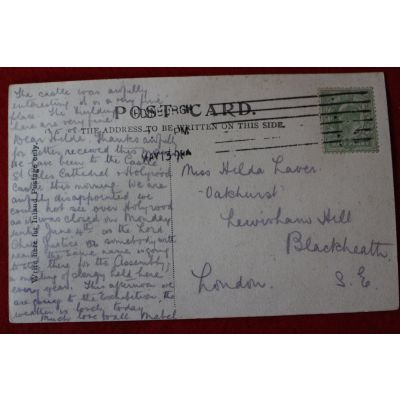 The castle was awfully
interesting & is a very fine
place. The buildings
here are very fine.
POST CARD.
EDINBURGH
THE ADDRESS TO BE WRITTEN ON THIS SIDE.
MAY 13
Write here for Inland Postage only.
Dear Hilda. Thanks awfully
for letter, received this morning
We have been to the Castle
St Giles Cathedral & Holyrood
Castle this morning. We are
awfully disappointed we
could not see over Holyrood
as it was closed on Monday
until June 4th as the Lord
Chief Justice or somebody with
the same name is going
to there for the Assembly,
a meeting of clergy held here
every year. This afternoon we
are going to the Exhibition, the
weather is lovely today
Much love to all Mabel
Miss Hilda Laver
"Oakhurst"
Lewisham Hill
Blackheath
London. S.E.